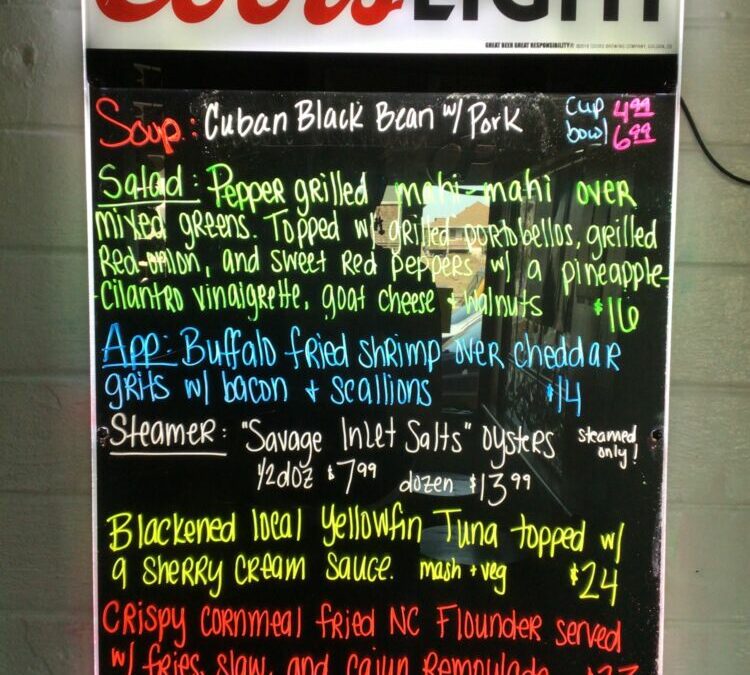 Coors LIGHT
GREAT BEER GREAT RESPONSIBILITY
Soup: Cuban Black Bean w/ Pork cup 4.99
bowl 6.99
Salad: Pepper grilled mahi-mahi over
mixed greens. Topped w/ grilled portobellos, grilled
Red-onion, and sweet Red peppers w/ a pineapple-
cilantro vinaigrette, goat cheese + walnuts $16
App: Buffalo fried shrimp over cheddar
grits w/ bacon + scallions $14
Steamer: "Savage Inlet Salts" oysters steamed only!
1/2 doz $7.99 dozen $13.99
Blackened local Yellowfin Tuna topped w/
a sherry cream sauce. mash + veg $24
Crispy cornmeal fried NC Flounder served
w/ fries, slaw, and cajun Remoulade